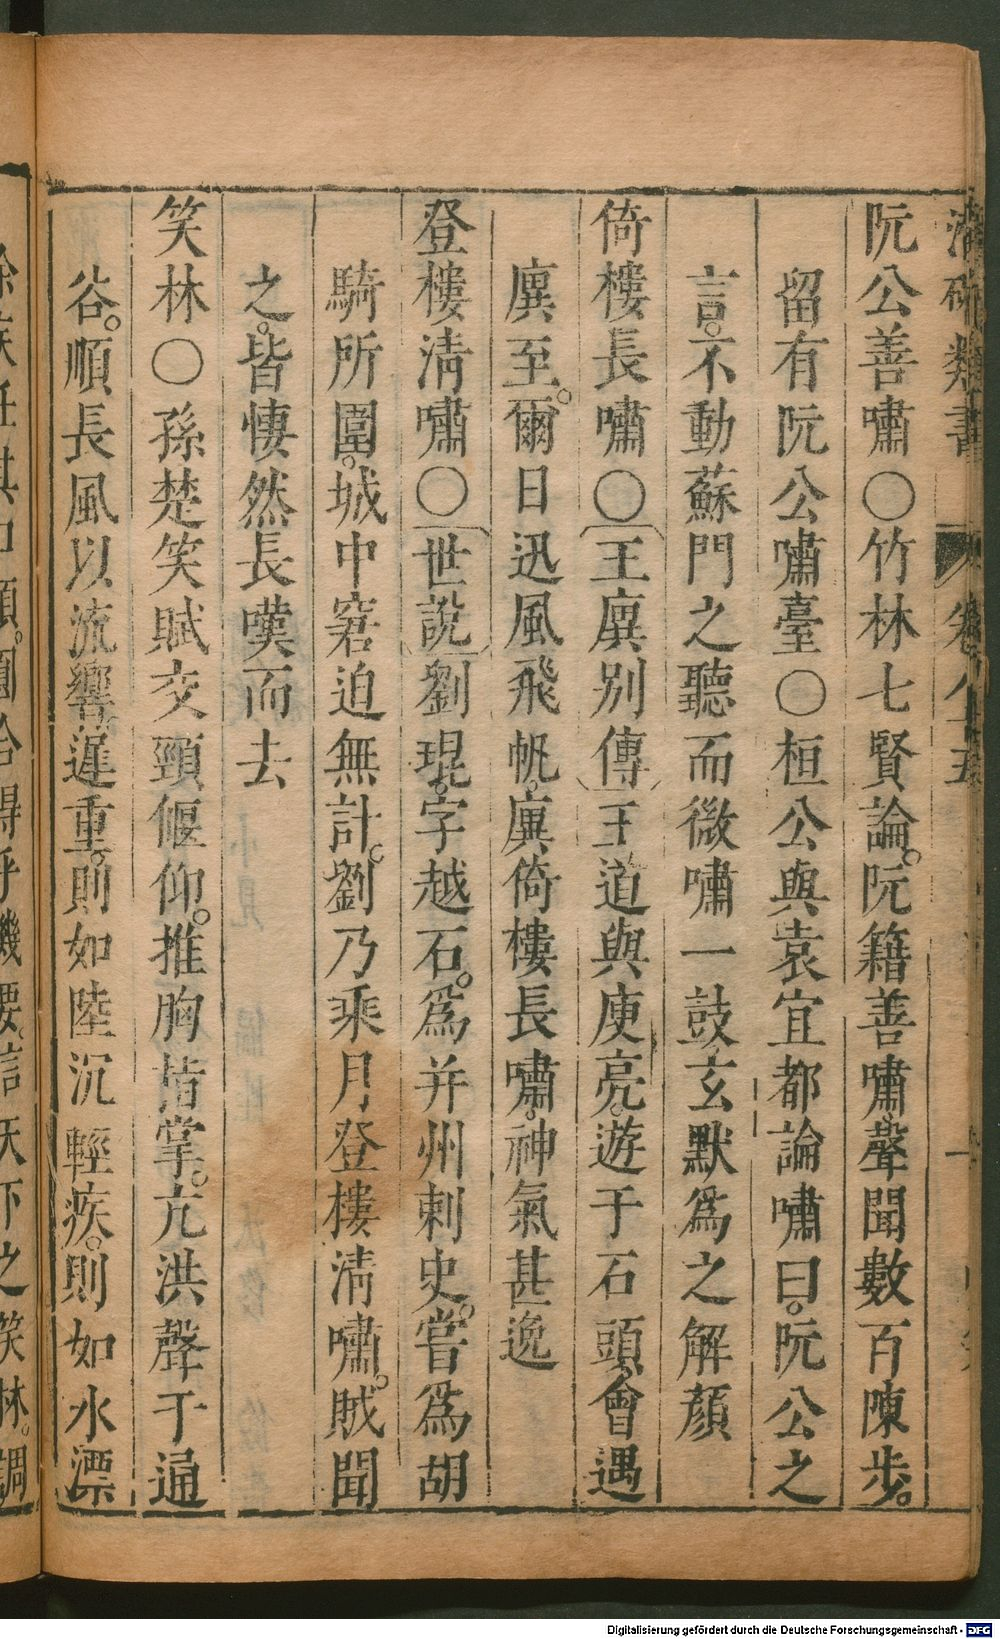 潛確類書 卷八十五
阮公善嘯○竹林七賢論。阮籍善嘯。聲聞數百陳步。
留有阮公嘯臺○桓公與袁宜都論嘯曰。阮公之
言。不動蘇門之聽而微嘯一鼓玄默爲之解顏
倚樓長嘯○王廙别傳王道與庾亮。遊于石頭。會遇
廙至。爾日迅風飛帆。廙倚樓長嘯。神氣甚逸
登樓淸嘯○世說劉琨。字越石。爲并州刺史。嘗爲胡
騎所圍。城中窘迫無計。劉乃乘月登樓淸嘯。賊聞
之。皆悽然長嘆而去
笑林○孫楚笑賦交頸偃仰。推胸掊掌。亢洪聲于通
谷。順長風以流響。遲重。則如陸沉輕疾。則如水漂
Digitalisierung gefördert durch die Deutsche Forschungsgemeinschaft - DFG